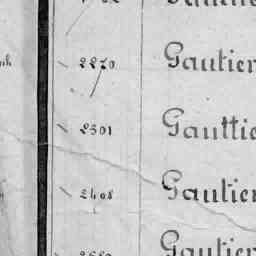 2270 Gautier
2301 Gauttie
2408 Gautier
Gautier